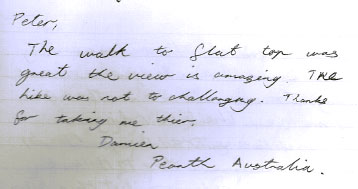 Peter,
The walk to flat top was
great the view is amazing. The
hike was not to challanging. Thanks
for taking me thier.
Damien
Peanth Australia.